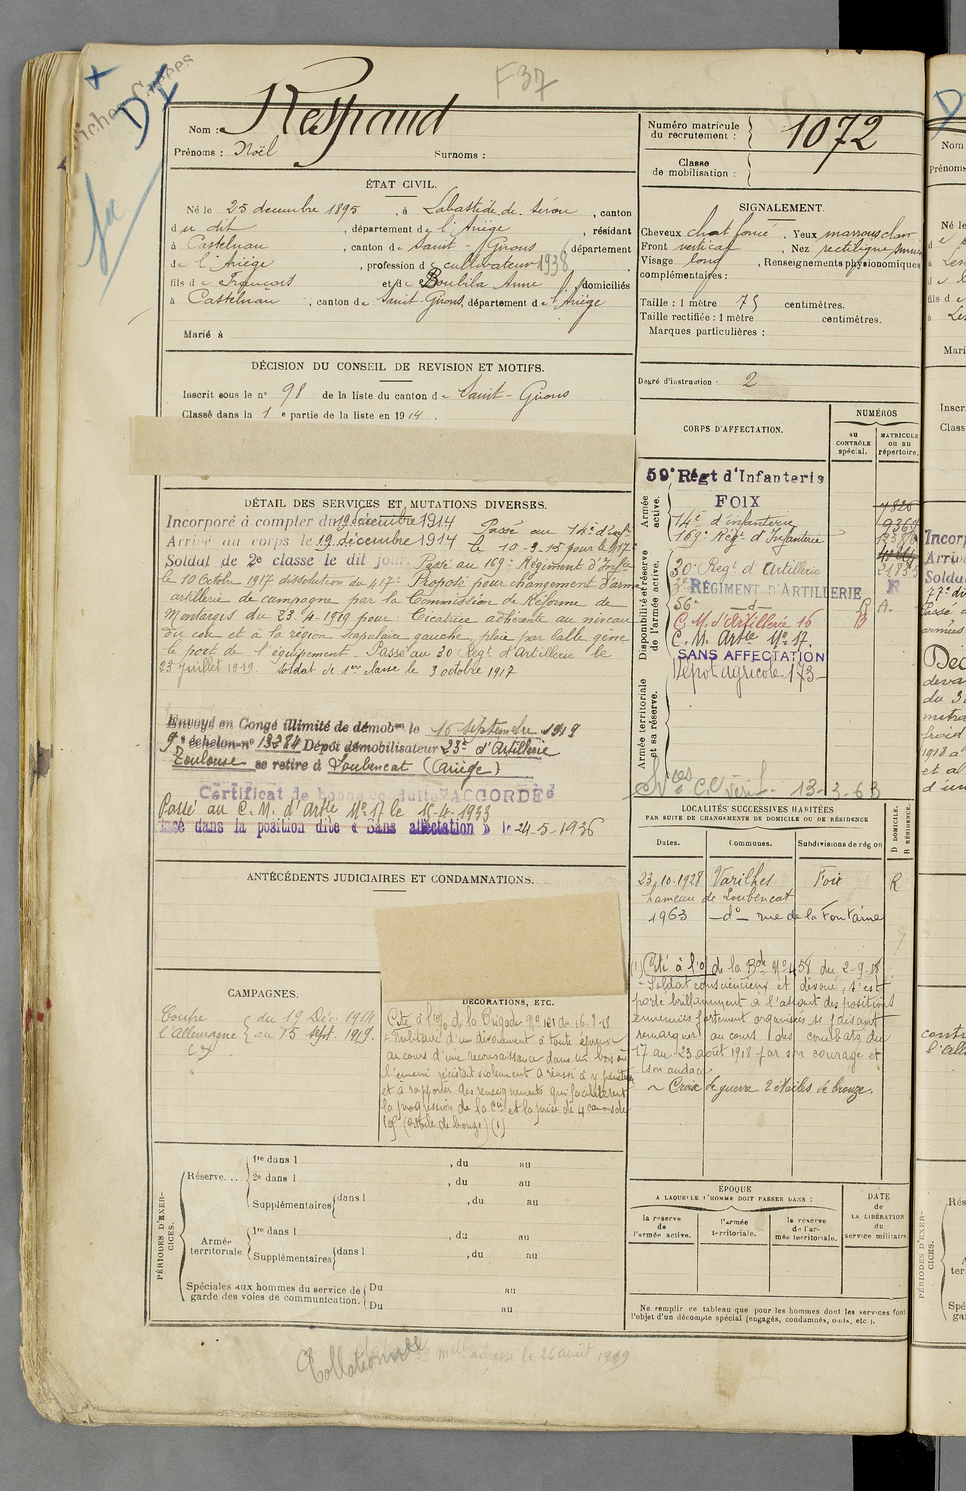 F37
Fiches Créées
DI
Nom : Respaud
Prénoms : Noël Surnoms :
Numéro matricule du recrutement : 1072
Classe de mobilisation :
ÉTAT CIVIL.
Né le 25 décembre 1895, à Labastide de Sérou, canton
du dit, département de l'Ariège, résidant
à Castelnau, canton de Saint-Girons département
de l'Ariège, profession de cultivateur 1938
fils de François et de Boubila Anne domiciliés
à Castelnau, canton de Saint-Girons, département de l'Ariège
Marié à
SIGNALEMENT.
Cheveux chat foncé. Yeux marrons clair
Front vertical, Nez rectiligne
Visage long, Renseignements physionomiques
complémentaires :
Taille : 1 mètre 75 centimètres.
Taille rectifiée : 1 mètre centimètres.
Marques particulières :
DÉCISION DU CONSEIL DE REVISION ET MOTIFS.
Inscrit sous le n° 98 de la liste du canton de Saint-Girons
Classé dans la 1e partie de la liste en 1914.
Degré d'instruction : 2
CORPS D'AFFECTATION.
NUMÉROS
au CONTRÔLE spécial.
MATRICULE ou au répertoire.
DÉTAIL DES SERVICES ET MUTATIONS DIVERSES.
Incorporé à compter du 19 décembre 1914 Passé au 14e d'Inf
Arrivé au corps le 19 décembre 1914 le 10-9-15 Passé au 417e
Soldat de 2e classe le dit jour. Passé au 169e Régiment d'Inf
le 10 Octobre 1917 dissolution du 417e Proposé pour changement d'arme
artillerie de campagne par la Commission de Réforme de
Montargis du 23.4.1919 pour : Cicatrice adhérente au niveau
du cou et à la région scapulaire gauche, plaie par balle gêne
le port de l'équipement. Passé au 30e Regt d'Artillerie le
23 juillet 1919. Soldat de 1ère classe le 3 octobre 1917
Envoyé en Congé illimité de démobon le 16 septembre 1919
9e échelon n° 13284 Dépôt démobilisateur 23e d'Artillerie
Toulouse se retire à Loubencat (Ariège)
Certificat de bonne conduite "ACCORDÉ"
Passé au C. M. d'Artie No 17 le 15-4-1933
Placé dans la position dite « Sans affectation » le 24-5-1936
Armée active.
59e Régt d'Infanterie
FOIX
14e d'infanterie
169e Régt d'Infanterie
9369
Disponibilité et réserve de l'armée active.
30e Regt d'Artillerie
RÉGIMENT D'ARTILLERIE
56e —d—
R. A.
C. M. d'Artillerie 16
C. M. Artie No 17.
SANS AFFECTATION
Dépôt Agricole 173
Armée territoriale et sa réserve.
13-3-63
LOCALITÉS SUCCESSIVES HABITÉES
PAR SUITE DE CHANGEMENTS DE DOMICILE OU DE RÉSIDENCE
Dates. Communes. Subdivisions de région
D DOMICILE. R RÉSIDENCE.
23.10.1928 Varilhes Foix R
hameau de Loubencat
1963 —do— rue de la Fontaine
ANTÉCÉDENTS JUDICIAIRES ET CONDAMNATIONS.
CAMPAGNES.
Contre du 19 Déc. 1914
l'Allemagne au 15 Sept. 1919.
DÉCORATIONS, ETC.
Cité à l'o/ de la Brigade No 121 du 16.9.18
"Militaire d'un dévouement à toute épreuve
au cours d'une reconnaissance dans un bois où
l'ennemi résistait violemment a réussi à y pénétrer
et à rapporter des renseignements qui facilitèrent
la progression de la Cie et la prise de 4 canons de
(étoile de bronze) (1)
(1) Cité à l'o/ de la Bde No 458 du 2-9-18
"Soldat consciencieux et dévoué, s'est
porté brillamment à l'assaut des positions
ennemies fortement organisées se faisant
remarquer au cours des combats du
17 au 23 août 1918 par son courage et
son audace"
~ Croix de guerre 2 étoiles de bronze.
PÉRIODES D'EXERCICES.
Réserve....
1re dans l , du au
2e dans l , du au
Supplémentaires dans l , du au
Armée territoriale
1re dans l , du au
Supplémentaires dans l , du au
Spéciales aux hommes du service de garde des voies de communication.
Du au
Du au
ÉPOQUE
A LAQUELLE L'HOMME DOIT PASSER DANS :
la réserve de l'armée active.
l'armée territoriale.
la réserve de l'armée territoriale.
DATE de LA LIBÉRATION du service militaire.
Ne remplir ce tableau que pour les hommes dont les services font
l'objet d'un décompte spécial (engagés, condamnés, omis, etc.).
Collationnée
adressé le 26 août 1919